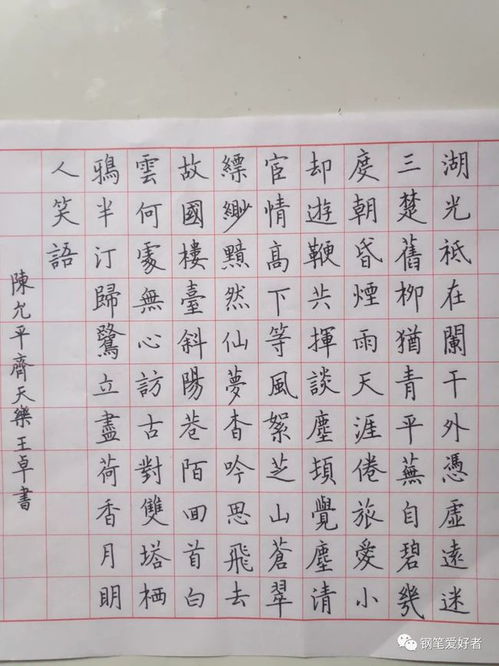 湖光祗在闌干外憑虛遠迷
三楚舊柳猶青平蕪自碧幾
度朝昏煙雨天涯倦旅愛小
却遊鞭共揮談塵頓覺塵清
宦情高下等風絮芝山蒼翠
縹緲黯然仙夢杳吟思飛去
故國樓臺斜陽巷陌囬首白
雲何處無心訪古對雙塔栖
鴉半汀歸鷺立盡荷香月明
人笑語
陳允平齊天樂王卓書
钢笔爱好者